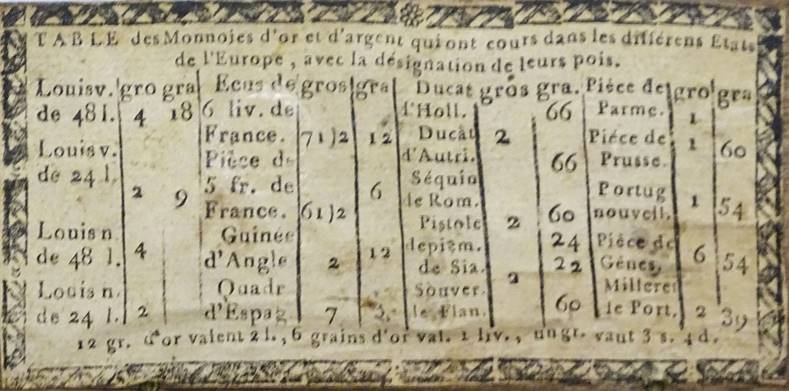 TABLE des Monnoies d'or et d'argent qui ont cours dans les différens Etats
de l'Europe, avec la désignation de leurs pois.
Louis v. gro gra Ecus de gros gra Ducat gros gra. Pièce de gro gra
de 48 l. 4 18 6 liv. de d'Holl. 66 Parme. 1
France. 71)2 12 Ducat 2 Pièce de 1 60
Louis v. Pièce de d'Autri. 66 Prusse.
de 24 l. 2 9 5 fr. de 6 Séquin Portug 1 54
France. 61)2 de Rom. 2 60 nouvell.
Louis n. 4 Guinée 12 Pistole 24 Pièce de 6 54
de 48 l. d'Angle 2 depiém. 22 Gènes,
Louis n. Quadr de Sia. 2 Milleret
de 24 l. 2 d'Espag 7 Souver. 60 de Port. 2 39
le Flan.
12 gr. d'or valent 2 l., 6 grains d'or val. 1 liv., un gr. vaut 3 s. 4 d.